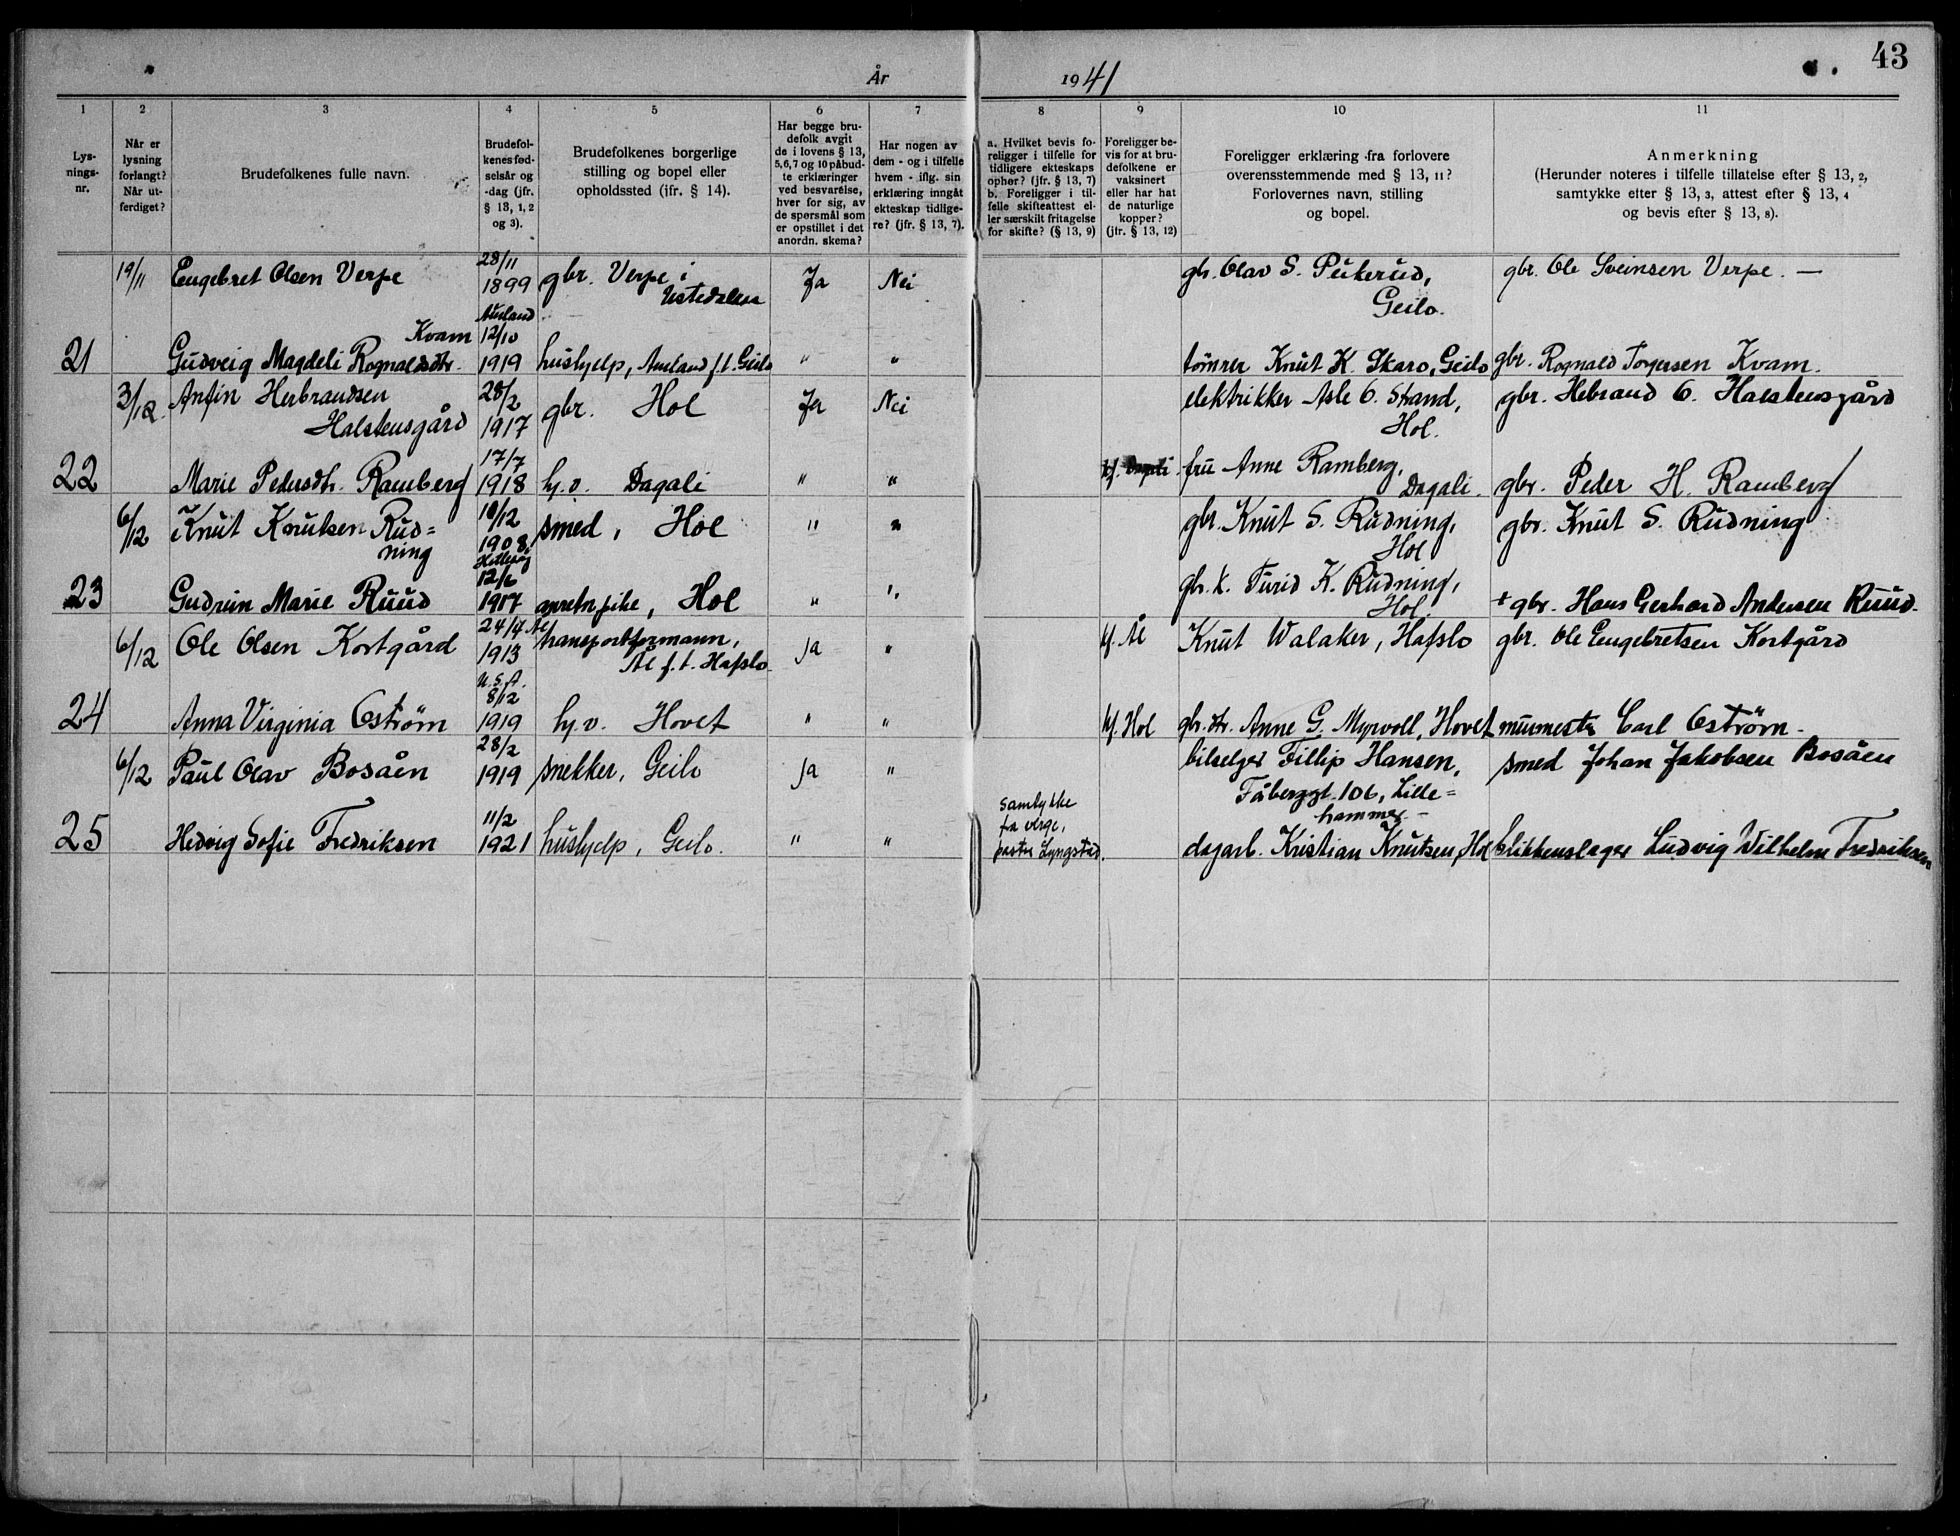 43
År 1941
1 2 3 4 5 6 7 8 9 10 11
Lys-
nings-
nr.
Når er
lysning
forlangt?
Når ut-
ferdiget?
Brudefolkenes fulle navn.
Brudefol-
kenes fød-
selsår og
-dag (jfr.
§ 13, 1, 2
og 3).
Brudefolkenes borgerlige
stilling og bopel eller
opholdssted (ifr. § 14).
Har begge bru-
defolk avgit
de i lovens § 13,
5, 6, 7 og 10 påbud-
te erklæringer
ved besvarelse,
hver for sig, av
de spørsmål som
er opstillet i det
anordn. skema?
Har nogen av
dem - og i tilfelle
hvem - iflg. sin
erklæring inngått
ekteskap tidlige-
re? (jfr. § 13, 7).
a. Hvilket bevis fo-
religger i tilfelle for
tidligere ekteskaps
ophør? (jfr. § 13, 7)
b. Foreligger i til-
felle skifteattest el-
ler særskilt fritagelse
for skifte? (§ 13, 9)
Foreligger be-
vis for at bru-
defolkene er
vaksinert
eller har hat
de naturlige
kopper?
(jfr. § 13, 12)
Foreligger erklæring fra forlovere
overensstemmende med § 13, 11?
Forlovernes navn, stilling
og bopel.
Anmerkning
(Herunder noteres i tilfelle tillatelse efter § 13, 2,
samtykke efter § 13, 3, attest efter § 13, 4
og bevis efter § 13, 8).
19/11 Engebret Olsen Verpe 28/11 1899 gbr. Verpe i Ustedalen Ja Nei gbr. Olav S. Pukerud, Geilo. gbr. Ole Sveinsen Verpe. —
21 Gudveig Magdeli Rognaldsdtr. Kvam Aurland 12/10 1919 hushjelp, Aurland f.t. Geilo " " tømrer Knut K. Skaro, Geilo gbr. Rognald Torgersen Kvam.
3/12. Anfin Herbrandsen Halstensgård 28/2 1917 gbr. Hol Ja Nei elektrikker Asle O. Strand, Hol. gbr. Hebrand O. Halstensgård
22 Marie Pedersdtr. Ramberg 17/7 1918 hj.v. Dagali " " fru Anne Ramberg, Dagali. gbr. Peder H. Ramberg
6/12 Knut Knutsen Rud=
ning 10/12 1908 smed, Hol " " gbr. Knut S. Rudning, Hol gbr. Knut S. Rudning
23 Gudrun Marie Ruud 12/6 1917 pike, Hol " " gbr. k. Turid K. Rudning, Hol + gbr. Hans Gerhard Andersen Ruud.
6/12 Ole Olsen Kortgård 24/4 Ål 1913 transportformann, Ål f.t. Hafslo. Ja " kf. Ål Knut Walaker, Hafslo gbr. Ole Engebretsen Kortgård
24 Anna Virginia Oström U.S.A. 8/12 1919 hj.v. Hovet " " kf. Hol gbr.dtr. Anne G. Myrvoll, Hovet murmester Carl Oström.
6/12 Paul Olav Bosåen 28/2 1919 snekker, Geilo Ja " bilselger Fillip Hansen, Fåberggt. 106, Lille=
hammer. smed Johan Jakobsen Bosåen
25 Hedvig Sofie Fredriksen 11/2 1921 hushjelp, Geilo. " " samtykke
fra verge,
pastor Lyngstad. dagarb. Kristian Knutsen, Hol blikkenslager Ludvig Wilhelm Fredriksen